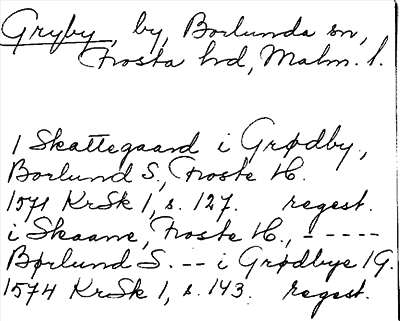 Gryby, by, Borlunda sn,
Frosta hd, Malm. l.
1 Skattegaard i Grødby,
Borlund S., Froste H.
1571 KrSk 1, s. 127. regest.
i Skaane, Froste H., - - - - -
Børlund S. -- i Grødbye 1 G.
1574 KrSk 1, s. 143. regest.